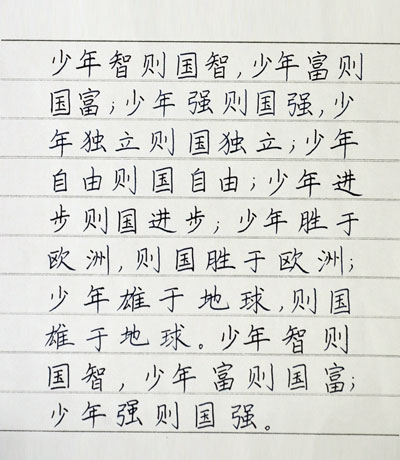 少年智则国智,少年富则
国富;少年强则国强,少
年独立则国独立;少年
自由则国自由;少年进
步则国进步;少年胜于
欧洲,则国胜于欧洲;
少年雄于地球,则国
雄于地球。少年智则
国智,少年富则国富;
少年强则国强。